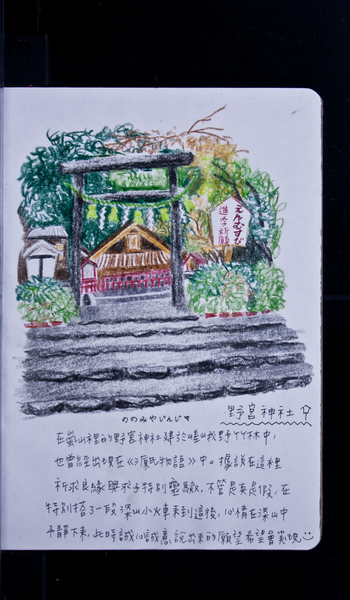 えんむすび
進学祈願
ののみやじんじゃ
野宮神社
在嵐山裡的野宮神社建於嵯峨野竹林中,
也曾經出現在《源氏物語》中。據說在這裡
祈求良緣與求子特別靈驗,不管是真是假,在
特別搭了一段深山小火車來到這後,心情在深山中
平靜下來,此時誠心誠意說出來的願望希望會實現